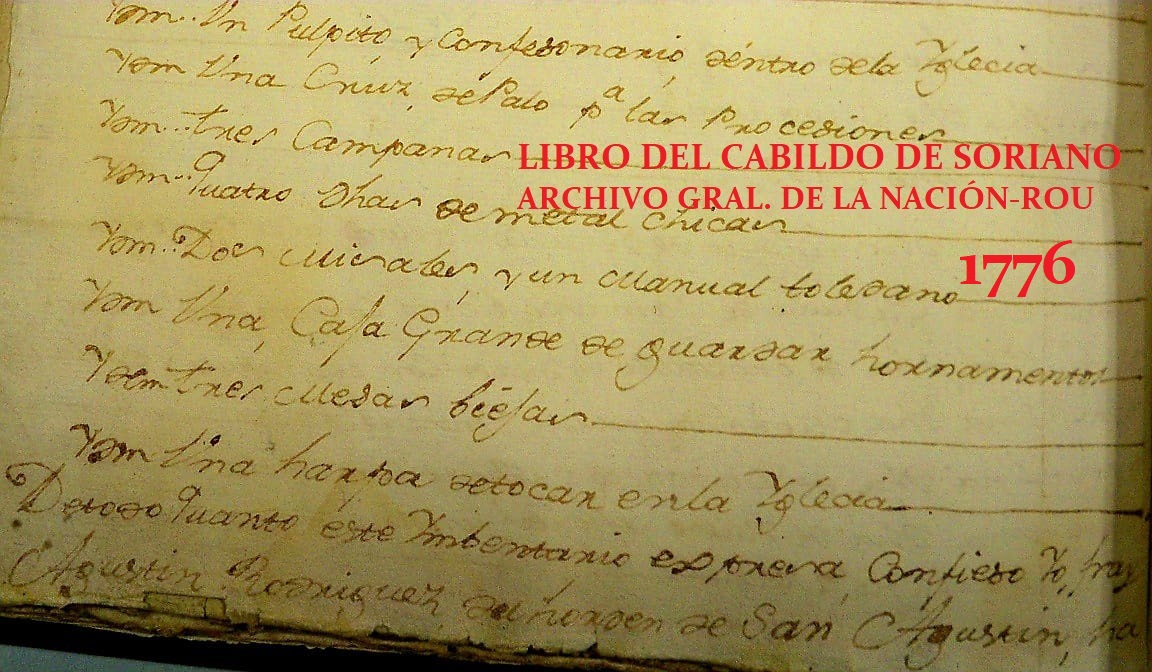 Ytm.. Un Pulpito y Confesonario dentro dela Yglecia
Ytm Una Cruz de Palo pª las Procesiones
Ytm.. tres Campanas
LIBRO DEL CABILDO DE SORIANO
Ytm.. Quatro dhas de metal Chicas
ARCHIVO GRAL. DE LA NACIÓN-ROU
1776
Ytm.. Dos Misales, y un Manual toledano
Ytm Una Caja Grande de guardar hornamentos
Ytem tres Mesas biejas
Ytm Una harpa de tocar en la Yglecia
De todo Quanto este Ymbentario expresa, Confieso Yo, fray
Agustin Rodriguez, del horden de San Agustin, ha